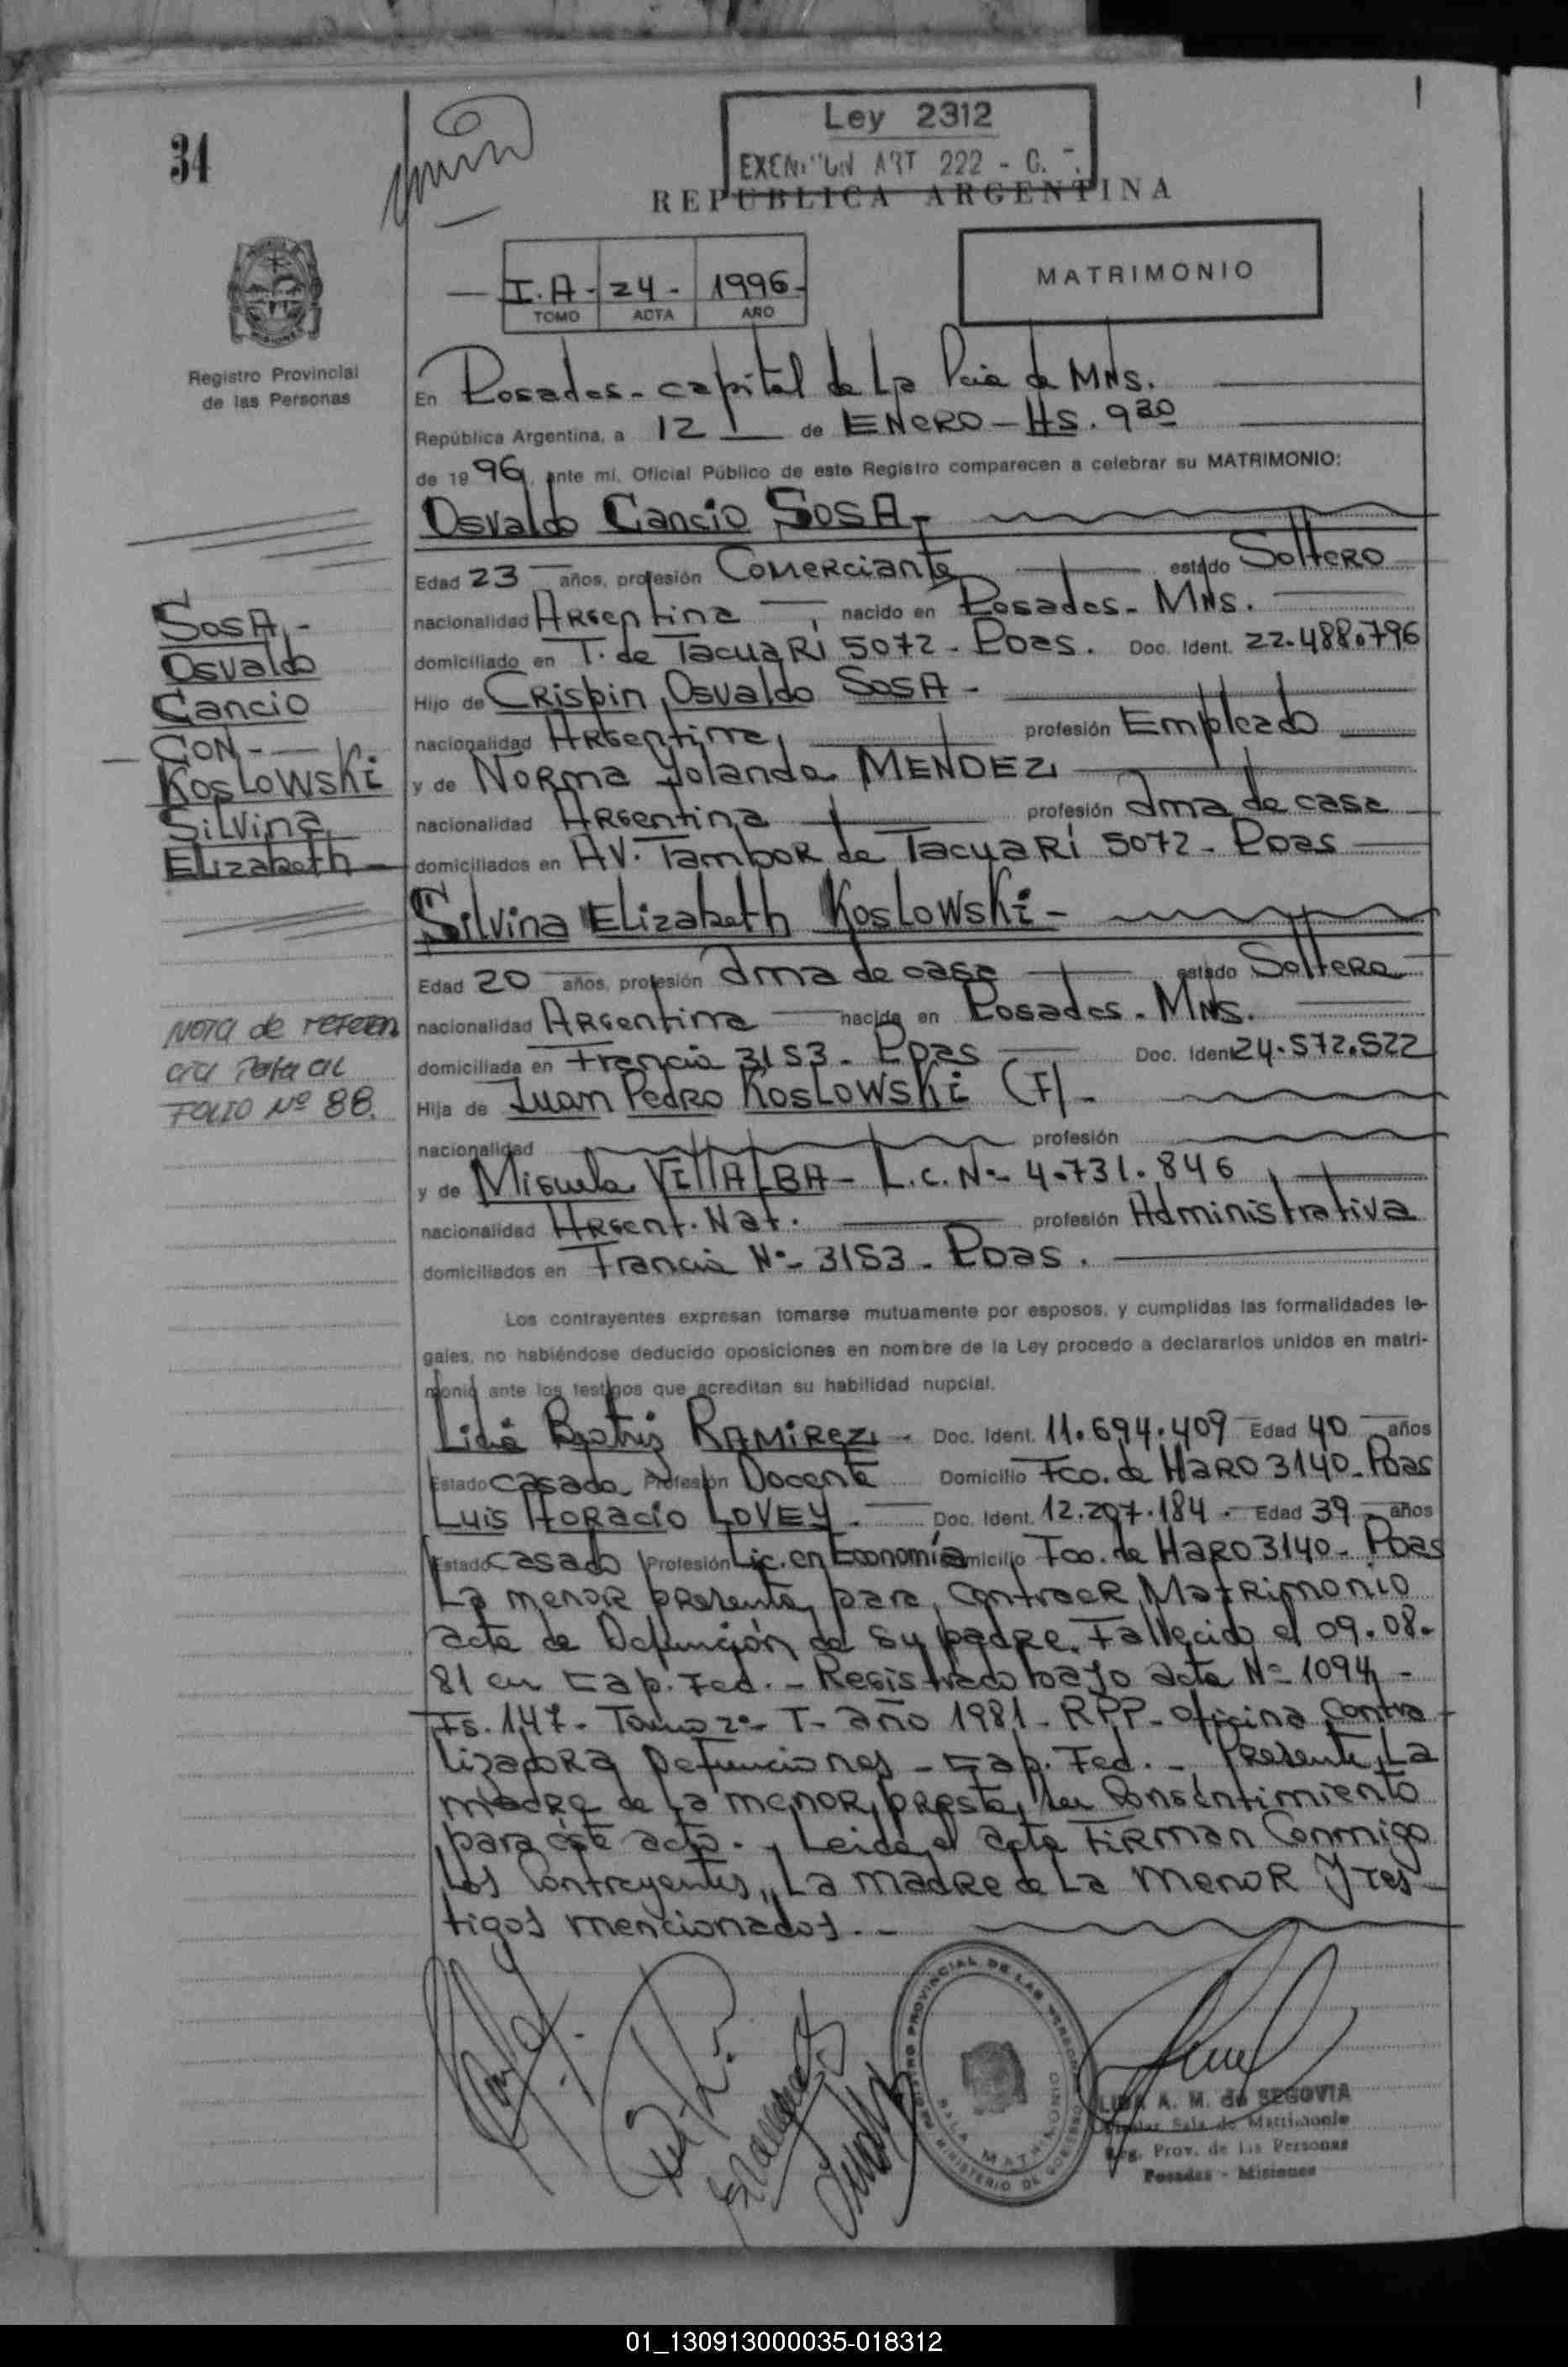 34
Ley 2312
EXENCION ART 222 - C.
REPUBLICA ARGENTINA
Registro Provincial
de las Personas
I.A - 24 - 1996 -
TOMO ACTA AÑO
MATRIMONIO
En Posadas - capital de La Pcia de MNS.
República Argentina, a 12 de ENERO - HS. 9 30
de 19 96, ante mí, Oficial Público de este Registro comparecen a celebrar su MATRIMONIO:
Osvaldo Cancio SOSA -
Edad 23 años, profesión Comerciante estado Soltero
nacionalidad Argentina, nacido en Posadas - MNS.
domiciliado en T. de Tacuarí 5072 - Pdas. Doc. Ident. 22.488.796
Hijo de Crispin Osvaldo SOSA -
nacionalidad Argentina, profesión Empleado
y de Norma Yolanda MENDEZ
nacionalidad Argentina profesión Ama de casa
domiciliados en AV. Tambor de Tacuarí 5072 - Pdas
SOSA -
Osvaldo
Cancio
CON -
KosLowski
Silvina
Elizabeth
Silvina Elizabeth KosLowski -
Edad 20 años, profesión Ama de casa estado Soltera
nacionalidad Argentina nacida en Posadas - MNS.
domiciliada en Francia 3153 - Pdas Doc. Ident 24.572.522
Hija de Juan Pedro KosLowski (F) -
nacionalidad profesión
y de Miguela VillALBA - L.C. Nº- 4.731.846
nacionalidad Argent. Nat. profesión Administrativa
domiciliados en Francia Nº- 3153 - Pdas.
NOTA de referen
cia Pasa al
FOLIO Nº 88.
Los contrayentes expresan tomarse mutuamente por esposos, y cumplidas las formalidades le-
gales, no habiéndose deducido oposiciones en nombre de la Ley procedo a declararlos unidos en matri-
monio ante los testigos que acreditan su habilidad nupcial.
Lidia Beatriz RAMIREZ - Doc. Ident. 11.694.409 Edad 40 años
Estado casada Profesión Docente Domicilio Fco. de HARO 3140 - Pdas
Luis HORACIO LOVEY - Doc. Ident. 12.207.184 - Edad 39 años
Estado casado Profesión Lic. en Economía Domicilio Fco. de HARO 3140 - Pdas
La menor presenta para contraer Matrimonio
acta de Defunción de su padre Fallecido el 09.08.
81 en Cap. Fed. - Registrado bajo acta Nº 1094 -
Fs. 147 - Tomo 2º - T - año 1981 - RPP - oficina Contra
lizadora Defunciones - Cap. Fed. - Presente La
madre de La menor, presta su Consentimiento
para éste acto. - Leída el acta FIRMAN Conmigo
Los Contrayentes, La madre de La menor y tes-
tigos mencionados. -
REGISTRO PROVINCIAL DE LAS PERSONAS
SALA MATRIMONIO
MINISTERIO DE GOBIERNO
LIDA A. M. de SEGOVIA
Sala de Matrimonio
Reg. Prov. de las Personas
Posadas - Misiones
01_130913000035-018312